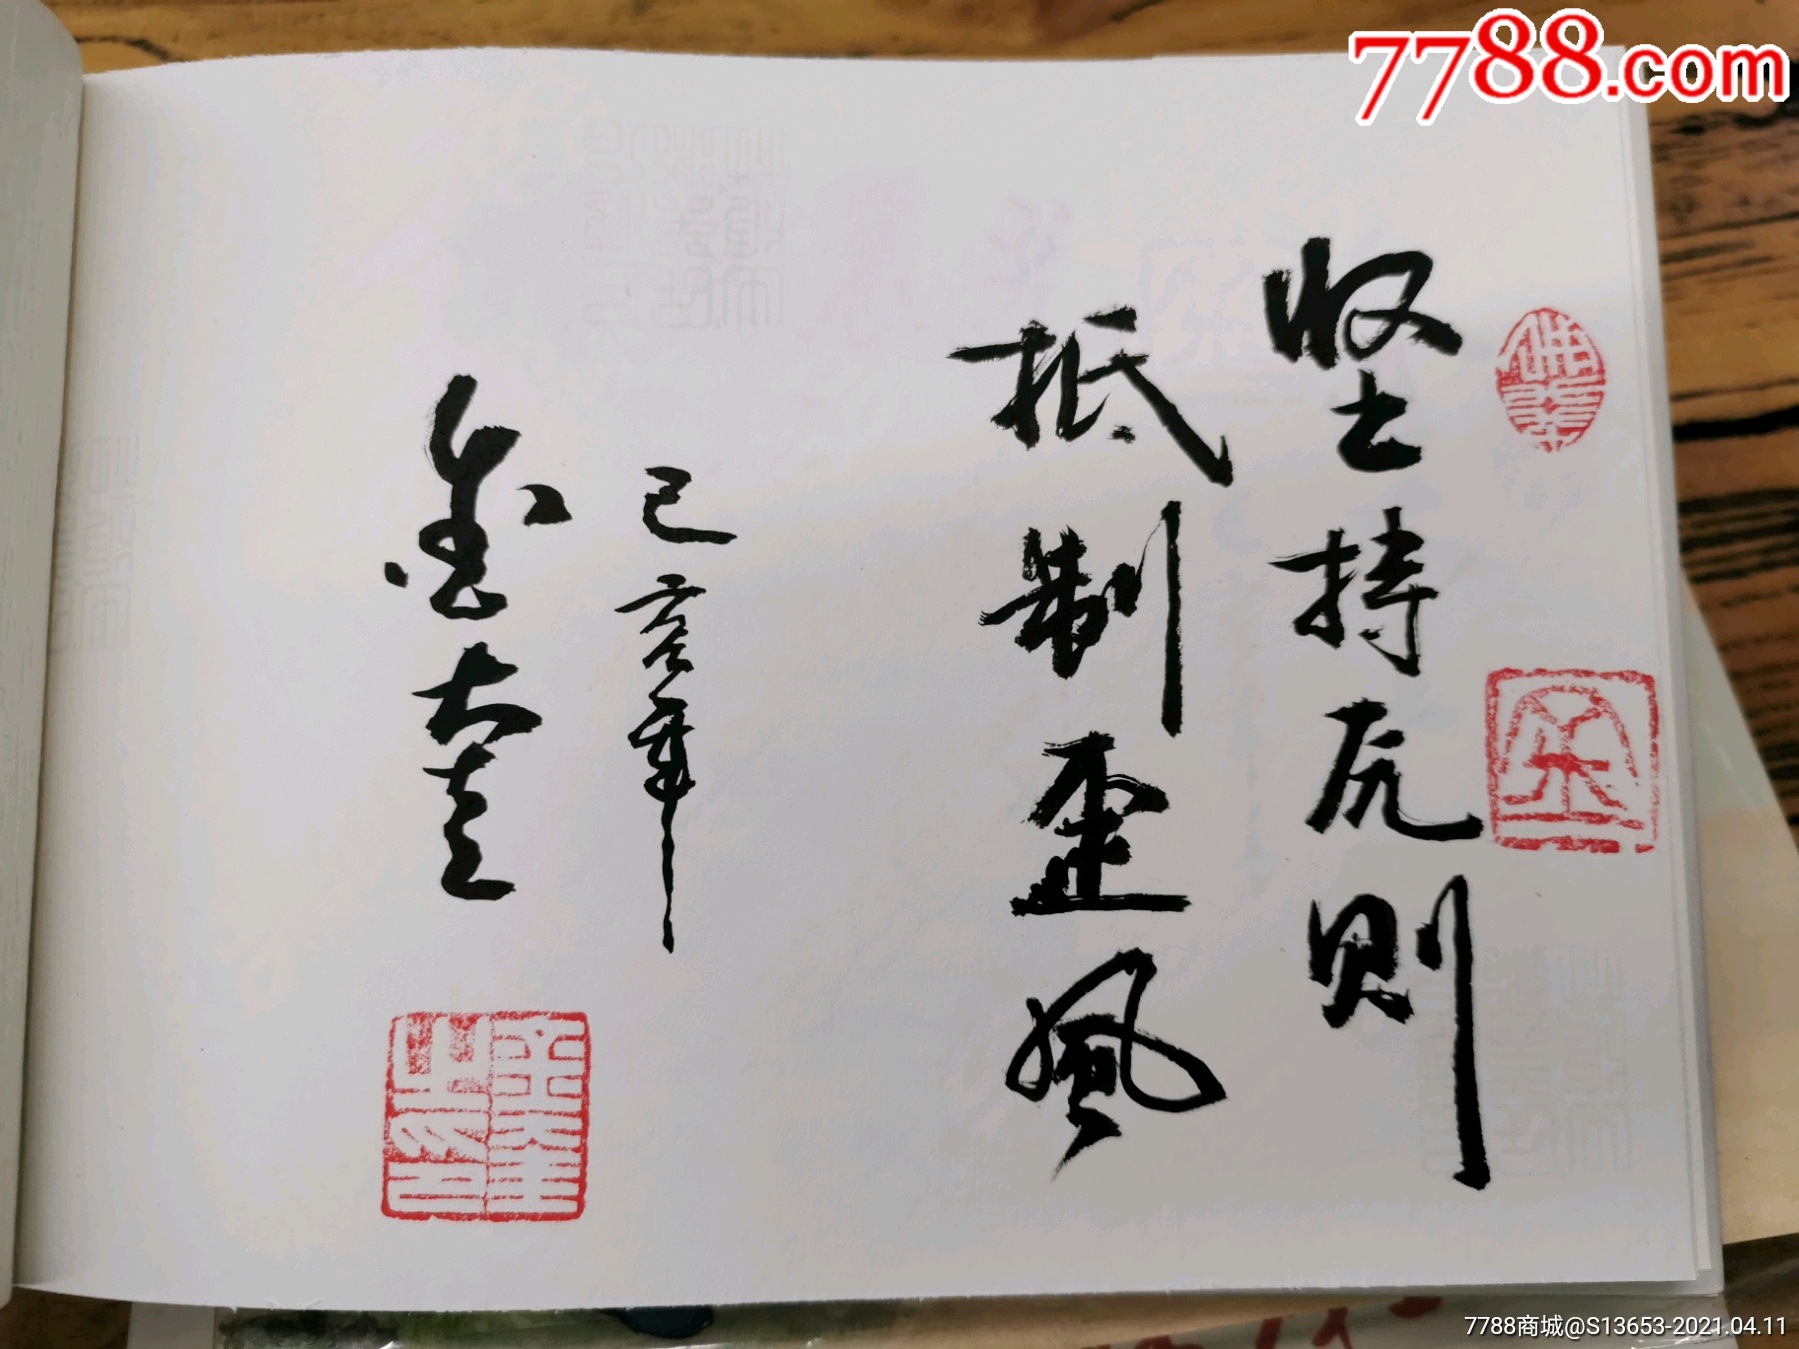 7788.com
坚持原则
抵制歪风
己亥年
金大
7788商城@S13653-2021.04.11